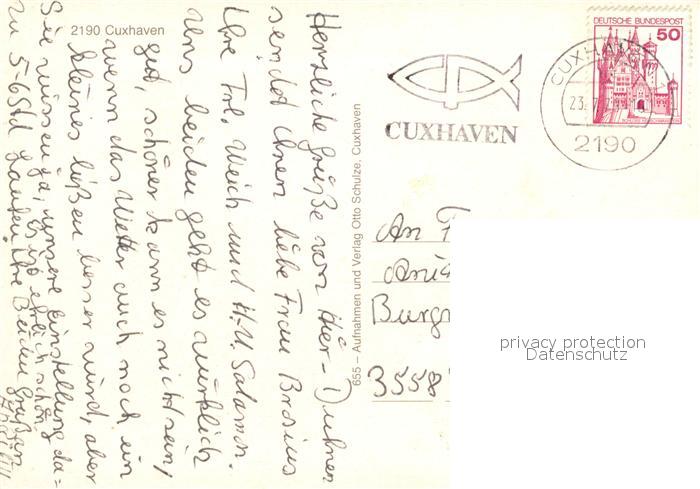 2190 Cuxhaven
Herzliche Grüße von Hier – Dühnen
sendet Ihnen liebe Frau Brosius
Ihre Frl. Weich und H.U. Salamon.
Uns beiden geht es wirklich
gut, schöner kann es nicht sein,
wenn das Wetter auch noch ein
kleines bißen besser wird, aber
Sie wissen ja, unsere Einstellung da-
zu
es ist ehrlich schön
5-6 Std laufen Ihre Beiden
655 – Aufnahmen und Verlag Otto Schulze, Cuxhaven
CUXHAVEN
CUXHAVEN
23.
2190
DEUTSCHE BUNDESPOST
50
An F
Burg
3558
privacy protection
Datenschutz